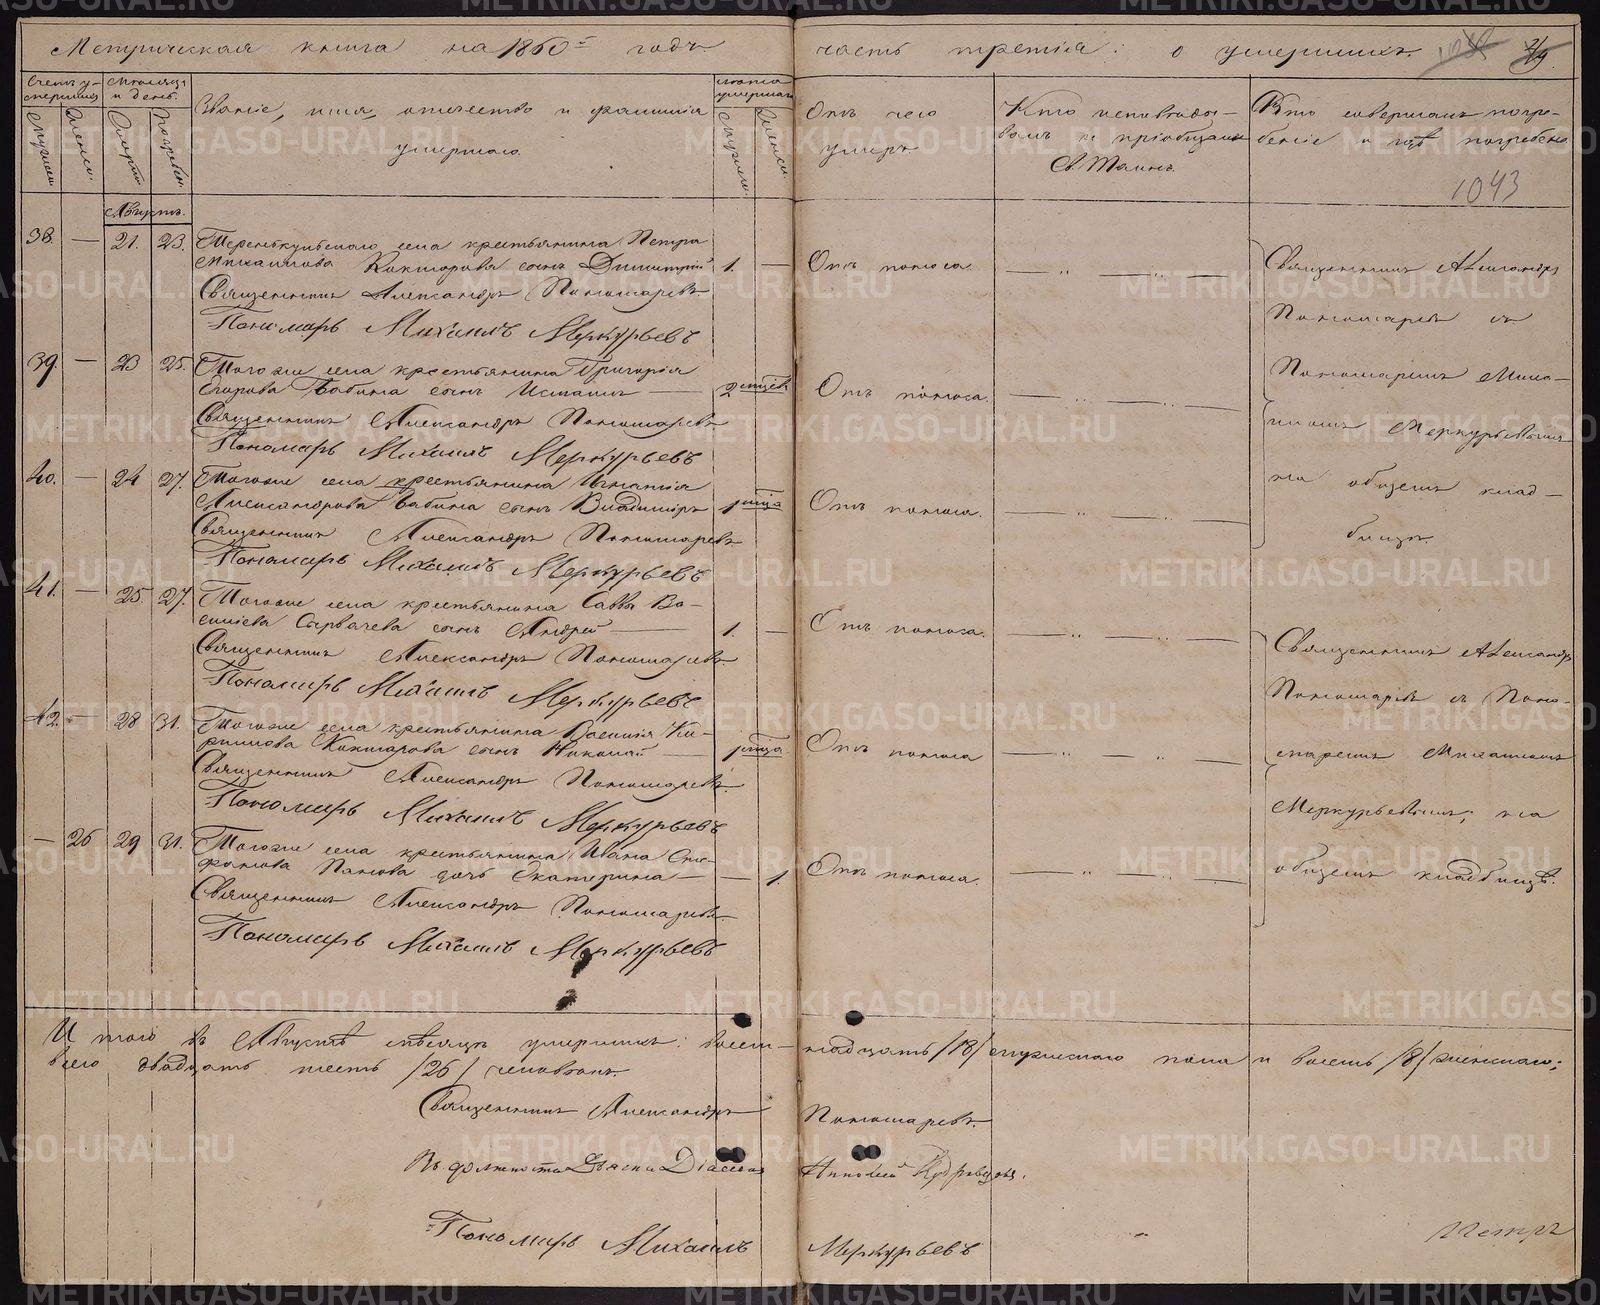 Метрическая книга на 1860й годъ часть третiя: о умершихъ.
Счетъ у- Мѣсяцъ
мершихъ и день.
Званiе, имя, отчество и фамилiя
умершаго.
Лѣта
умершаго
Отъ чего
умеръ
Кто исповѣды-
валъ и прiобщалъ
Св. Таинъ.
Кто совершалъ погре-
бенiе и гдѣ погребены
Мужеска. Женска. Смерти. Погребен. Мужеска. Женска.
1043
Августъ.
38. — 21. 23. Теренькульскаго села крестьянина Петра
Михаилова Кокшарова сынъ Димитрiй 1. — Отъ поноса.
Священникъ Александръ Пономаревъ.
Пономарь Михаилъ Меркурьевъ
39. — 23 25. Тогоже села крестьянина Григорiя
Егорова Бабина сынъ 2 мѣсяц. Отъ поноса.
Священникъ Александръ Пономаревъ
Пономарь Михаилъ Меркурьевъ
40. — 24 27. Тогоже села крестьянина Игнатiя
Александрова Бабина сынъ Владимiръ Отъ поноса.
Священникъ Александръ Пономаревъ
Пономарь Михаилъ Меркурьевъ
Священникъ Александръ
Пономаревъ съ
Пономаремъ Миха-
иломъ Меркурьевымъ
на общемъ клад-
бищѣ.
41. — 25. 27. Тогоже села крестьянина Саввы Ва-
силiева Сырвачева сынъ Андрей 1. — Отъ поноса.
Священникъ Александръ Пономаревъ
Пономарь Михаилъ Меркурьевъ
42. — 28 31. Тогоже села крестьянина Василiя Ки-
рилова Кокшарова сынъ Николай Отъ поноса
Священникъ Александръ Пономаревъ
Пономарь Михаилъ Меркурьевъ
— 26 29 31. Тогоже села крестьянина Ивана Сте-
фанова Панова дочь Екатерина — 1. Отъ поноса.
Священникъ Александръ Пономаревъ
Пономарь Михаилъ Меркурьевъ
Священникъ Александръ
Пономаревъ съ Поно-
маремъ Михаиломъ
Меркурьевымъ, на
общемъ кладбищѣ.
И того въ Августѣ мѣсяцѣ умершихъ: восем-надцать /18/ мужескаго пола и восемь /8/ женскаго;
всего двадцать шесть /26/ человѣкъ.
Священникъ Александръ Пономаревъ.
Въ должности Дьячка Дiаконъ Николай Кудрявцовъ.
Пономарь Михаилъ Меркурьевъ
METRIKI.GASO-URAL.RU